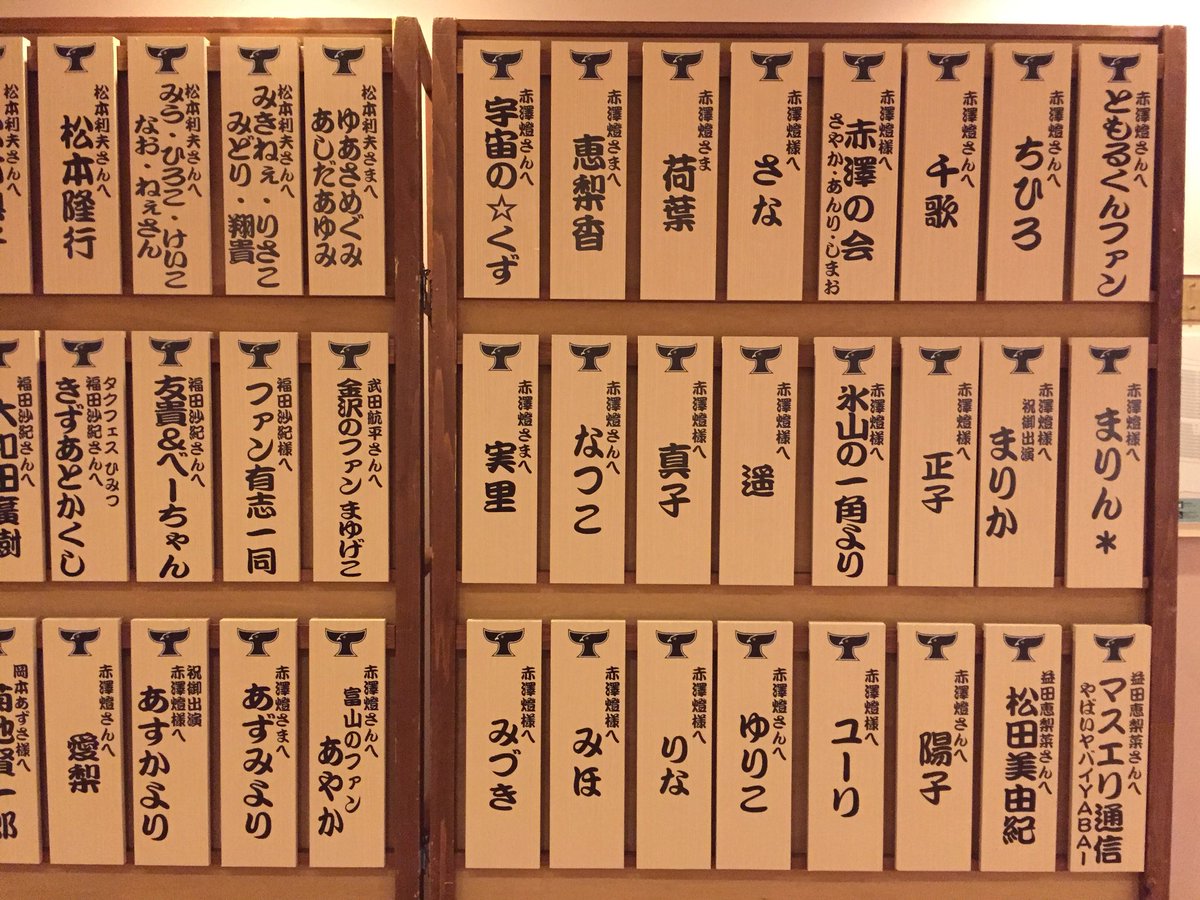 赤澤燈さんへ
ともるくんファン
赤澤燈さんへ
ちひろ
赤澤燈さんへ
千歌
赤澤燈様へ
赤澤の会
さやか・あんり・しまお
赤澤燈様へ
さな
赤澤燈さま
荷葉
赤澤燈さまへ
恵梨香
赤澤燈さんへ
宇宙の☆くず
赤澤燈様へ
まりん*
赤澤燈様へ
祝御出演
まりか
赤澤燈様へ
正子
赤澤燈様へ
氷山の一角より
赤澤燈様へ
遥
赤澤燈様へ
真子
赤澤燈さんへ
なつこ
赤澤燈さまへ
実里
益田恵梨菜さんへ
マスエリ通信
やばいヤバイYABAI
益田恵梨菜さんへ
松田美由紀
赤澤燈さんへ
陽子
赤澤燈様へ
ユーリ
赤澤燈さんへ
ゆりこ
赤澤燈様へ
りな
赤澤燈様へ
みほ
赤澤燈様へ
みづき
松本利夫さまへ
ゆあさめぐみ
あしだあゆみ
松本利夫さんへ
みきねぇ・りさこ
みどり・翔貴
松本利夫さんへ
みう・ひろこ・けいこ
なお・ねぇさん
松本利夫さんへ
松本隆行
松本利夫さんへ
武田航平さんへ
金沢のファン まゆげこ
福田沙紀様へ
ファン有志一同
福田沙紀さんへ
友貴&べーちゃん
タクフェス ひみつ
福田沙紀さんへ
きずあとかくし
福田沙紀さんへ
大和田廣樹
赤澤燈さんへ
富山のファン
あやか
赤澤燈さまへ
あずみより
祝御出演
赤澤燈様へ
あすかより
赤澤燈さんへ
愛梨
岡本あずさ様へ
菊地賢一郎